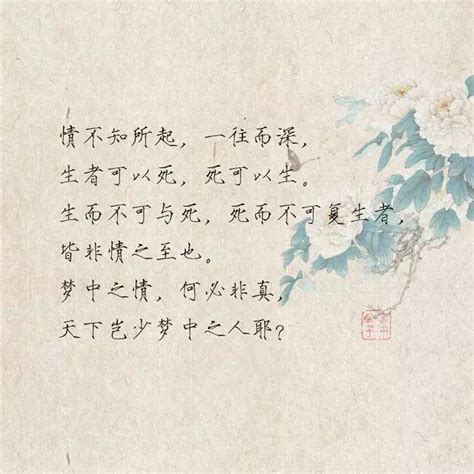 情不知所起，一往而深，
生者可以死，死可以生。
生而不可与死，死而不可复生者，
皆非情之至也。
梦中之情，何必非真，
天下岂少梦中之人耶？